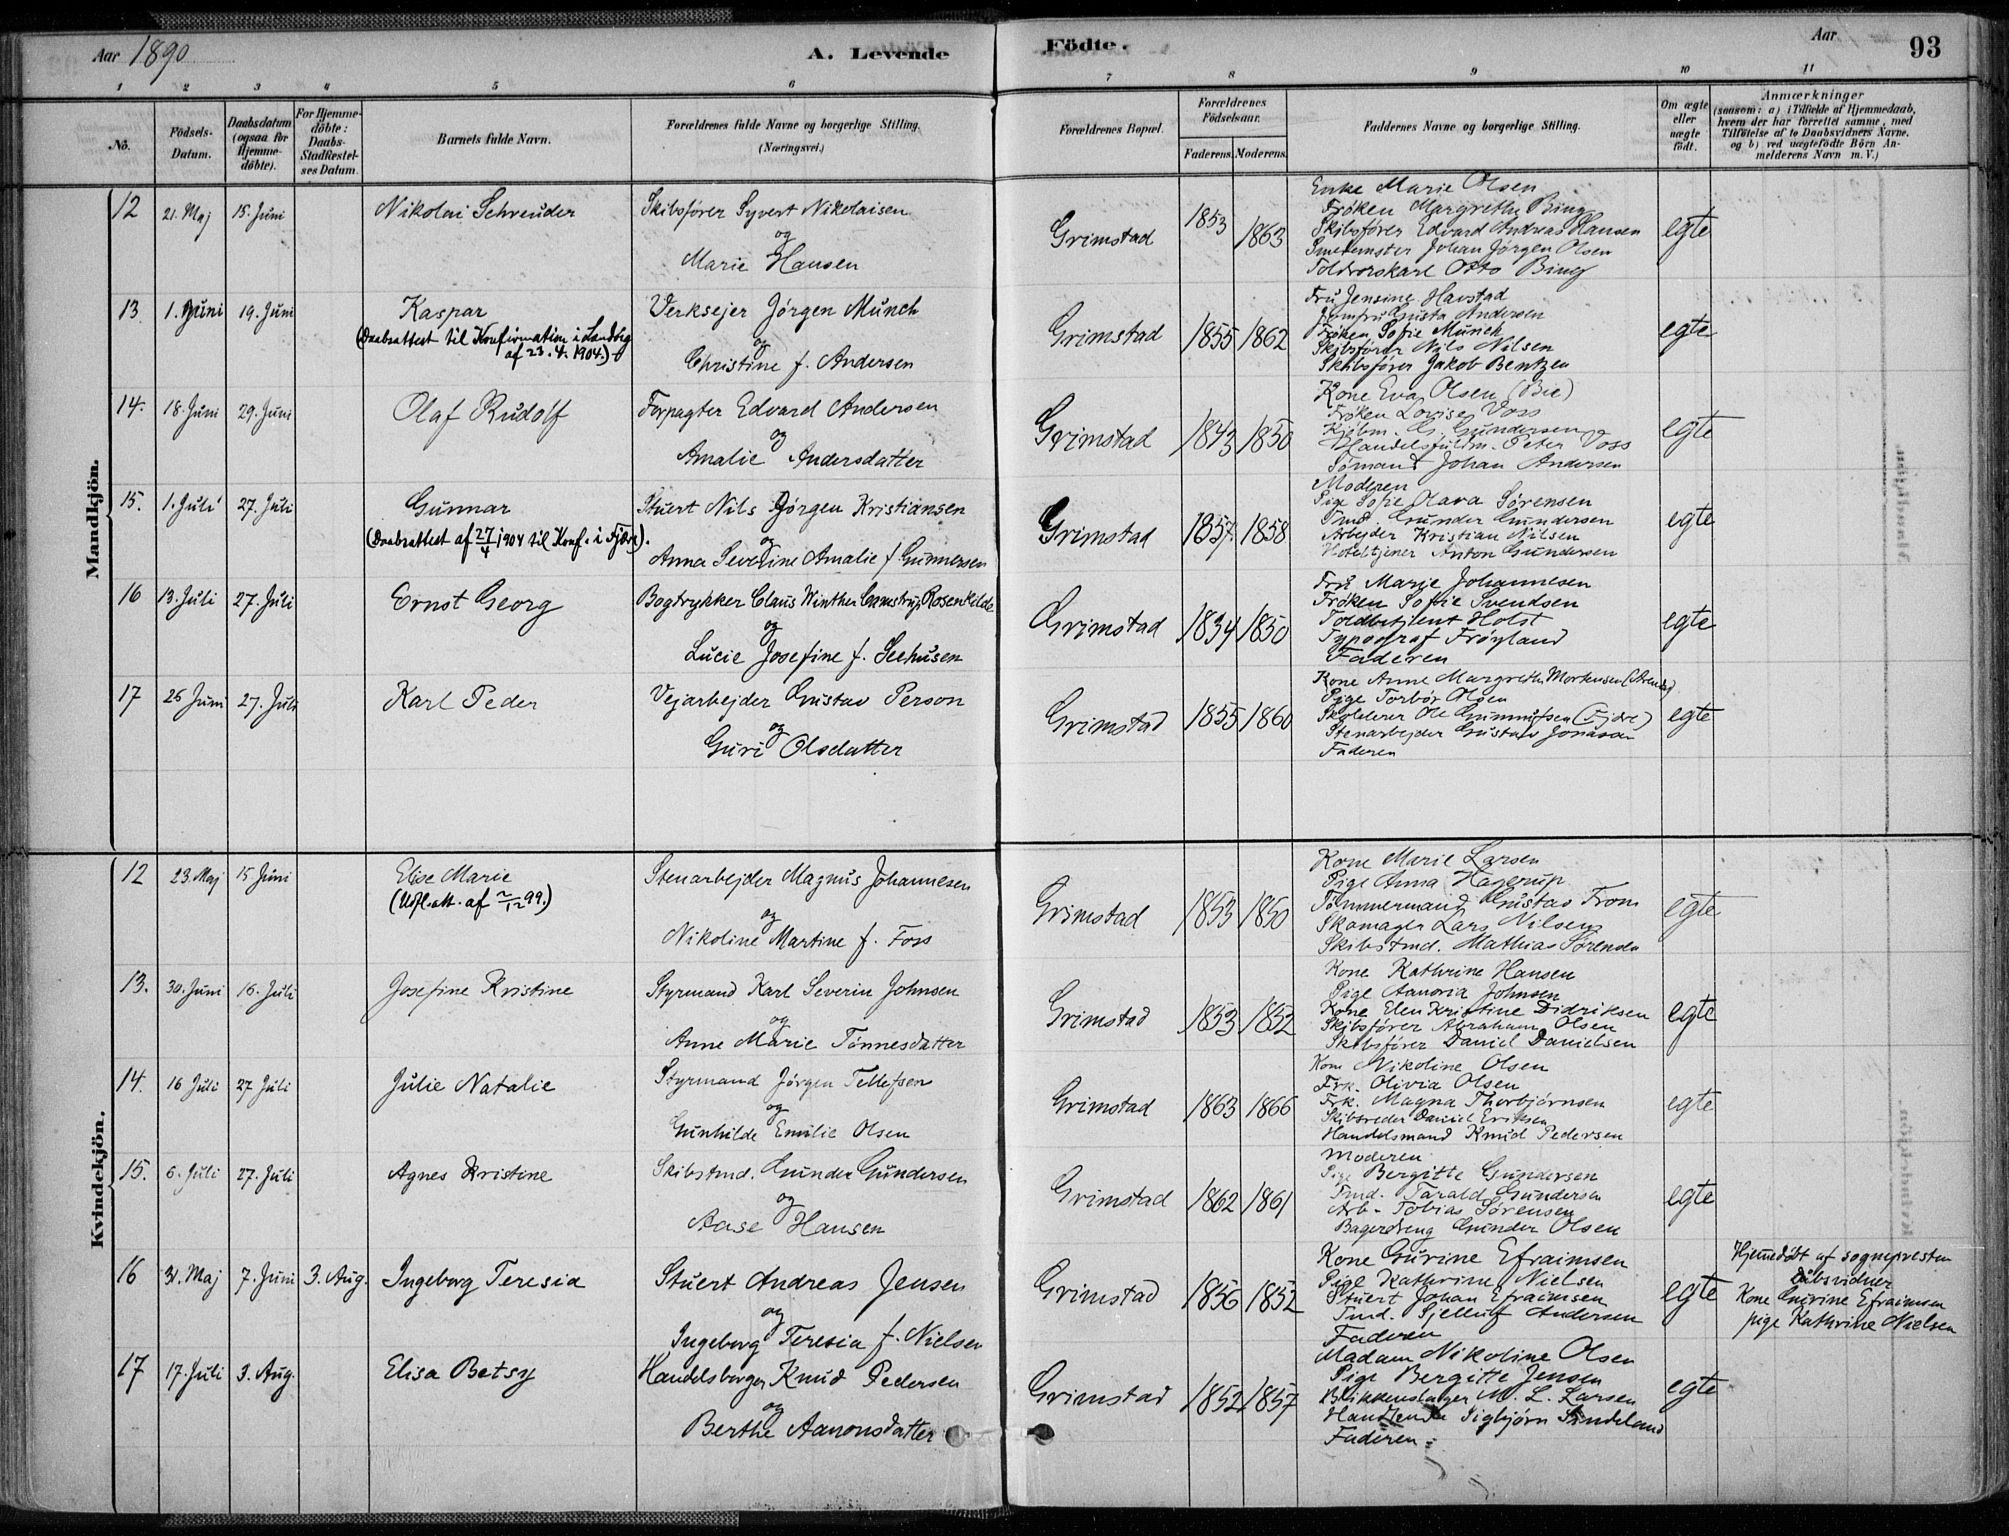 Aar 1890
A. Levende
Födte.
Aar
93
1 2 3 4 5 6 7 8 9 10 11
No.
Födsels-Datum.
Daabsdatum (ogsaa for Hjemme-döbte).
For Hjemme-döbte: Daabs-Stadfæstel-ses Datum.
Barnets fulde Navn.
Forældrenes fulde Navne og borgerlige Stilling. (Næringsvei.)
Forældrenes Bopæl.
Forældrenes Födselsaar.
Faderens. Moderens.
Faddernes Navne og borgerlige Stilling.
Om ægte eller uægte födt.
Anmærkninger
(saasom: a) i Tilfælde af Hjemmedaab, hvem der har forrettet samme, med Tilföielse af to Daabsvidners Navne. og b) ved uægtefödte Börn An-melderens Navn m. V.)
Mandkjön.
12 21. Maj 15. Juni Nikolai Schreuder
Skibsfører Syvert Nikolaisen
og
Marie Hansen
Grimstad 1853 1863
Enke Marie Olsen
Frøken Margrethe Bing
Skibsfører Edvard Andreas Hansen
Smedemster Johan Jørgen Olsen
Toldvorskarl Otto Bing
egte
13. 1. Juni 19. Juni Kaspar
(Daabsattest til Konfirmation i Landvig
af 23.4.1904.)
Verksejer Jørgen Münch
og
Christine f. Andersen
Grimstad 1855 1862
Fru Jensine Havstad
Jomfru Gusta Andersen
Frøken Sofie Münch
Skibsfører Nils Nilsen
Skibsfører Jakob Bentzen
egte
14. 18. Juni 29. Juni Olaf Rudolf
Forpagter Edvard Andersen
og
Amalie Andersdatter
Grimstad 1843 1850
Kone Eva Olsen (Bie)
Frøken Lovise Voss
Kjøbm. G. Gundersen
Handelsfuldm. Peter Voss
Sømand Johan Andersen
egte
15. 1. Juli 27. Juli Gunnar
(Daabsattest af 27/4 1904 til Konf. i Fjære).
Stuert Nils Jørgen Kristiansen
og
Anna Severine Amalie f. Gunnersen
Grimstad 1857 1858
Moderen
Pige Sofie Olava Sørensen
Tmd. Gunder Gundersen
Arbejder Kristian Nilsen
Hoteltjener Anton Gundersen
egte
16 13. Juli 27. Juli Ernst Georg
Bogtrykker Claus Winther Camstrup Rosenkilde
og
Lucie Josefine f. Seehusen
Grimstad 1834 1850
Fru Marie Johannesen
Frøken Sofie Svendsen
Toldbetjent Holst
Typograf Frøyland
Faderen
egte
17 26 Juni 27. Juli Karl Peder
Vejarbejder Gustav Person
og
Guri Olsdatter
Grimstad 1855 1860
Kone Anne Margrethe Mortensen (Arendal)
Pige Torbør Olsen
Skolelærer Ole Gunnufsen (Fjære)
Stenarbejder Gustav Jonasson
Faderen
egte
Kvindekjön.
12 23. Maj 15 Juni Elise Marie
(Udfl.att. af 2/12 99.)
Stenarbejder Magnus Johannesen
og
Nikoline Martine f. Foss
Grimstad 1853 1850
Kone Marie Larsen
Pige Anna Hagerup
Tømmermand Gustav From
Skomager Lars Nilsen
Skibstmd. Mathias Sørensen
egte
13. 30. Juni 16. Juli Josefine Kristine
Styrmand Karl Severin Johnsen
og
Anne Marie Tønnesdatter
Grimstad 1853 1852
Kone Kathrine Hansen
Pige Aanoria Johnsen
Kone Elen Kristine Didriksen
Skibsfører Abraham Olsen
Skibsfører Daniel Danielsen
egte
14. 16 Juli 27 Juli Julie Natalie
Styrmand Jørgen Tellefsen
og
Gunhilde Emilie Olsen
Grimstad 1863 1866
Kone Nikoline Olsen
Frk. Olivia Olsen
Frk. Magna Thorbjørnsen
Skibsreder Daniel Eriksen
Handelsmand Knud Pedersen
egte
15. 6. Juli 27. Juli Agnes Kristine
Skibstmd. Gunder Gundersen
og
Aase Hansen
Grimstad 1862 1861
Moderen
Pige Bergitte Gundersen
Tmd. Tarald Gundersen
Arb. Tobias Sørensen
Bagerdreng Gunder Olsen
egte
16 31. Maj 7. Juni 3. Aug. Ingeborg Teresia
Stuert Andreas Jensen
og
Ingeborg Teresia f. Nielsen
Grimstad 1856 1852
Kone Gurine Efraimsen
Pige Kathrine Nielsen
Stuert Johan Efraimsen
Tmd. Gjelluf Andersen
Faderen
egte
Hjemedøbt af sognepresten
Dåbsvidner
Kone Gurine Efraimsen
pige Kathrine Nielsen
17 17. Juli 3. Aug. Elisa Betsy
Handelsborger Knud Pedersen
og
Berthe Aanonsdatter
Grimstad 1852 1857
Madam Nikoline Olsen
Pige Bergitte Jensen
Blikkenslager M. L. Larsen
Handlende Sigbjørn
Faderen
egte